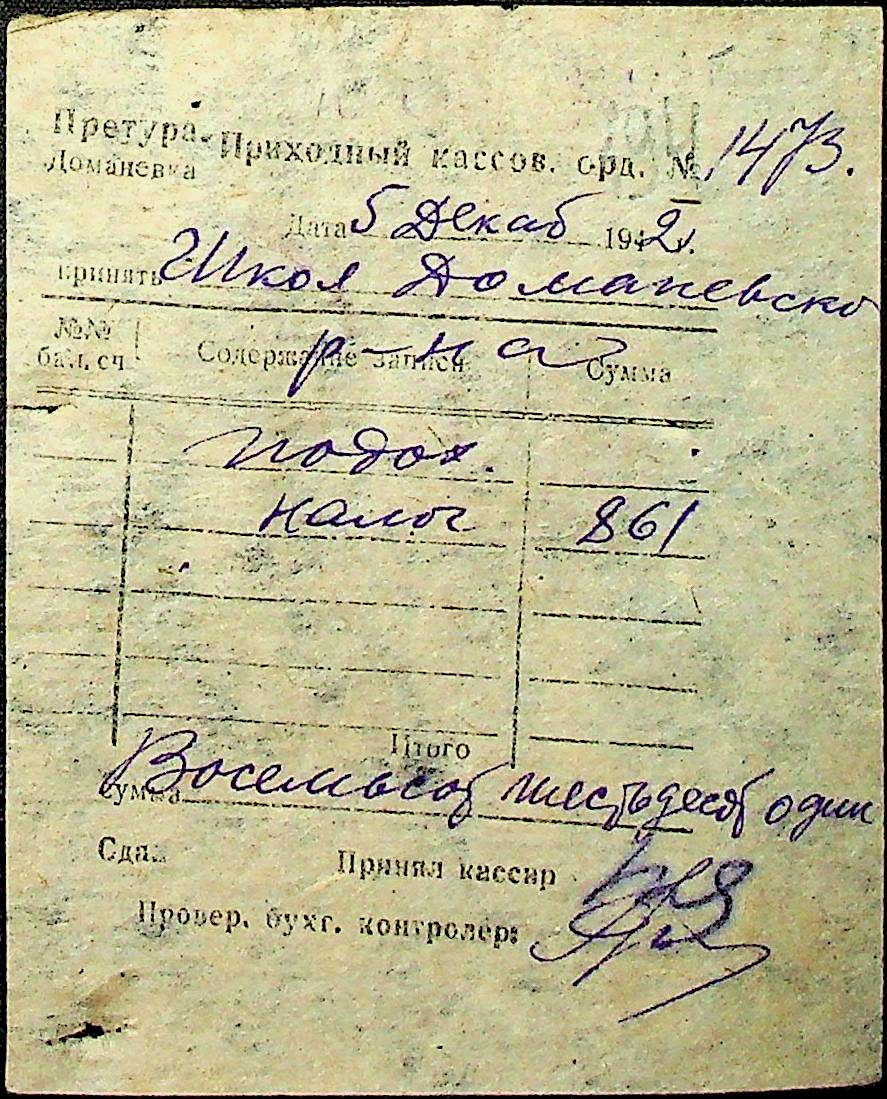 Претура Приходный кассов. орд. № 1473.
Доманевка
Дата 5 Декаб 1942.
принять Школ Доманевско
р-на
№№ бал. сч Содержание записи Сумма
подох.
налог 861
Итого
Сумма Восемьсот шестьдесят один
Сдал Принял кассир
Провер. бухг. контролер: